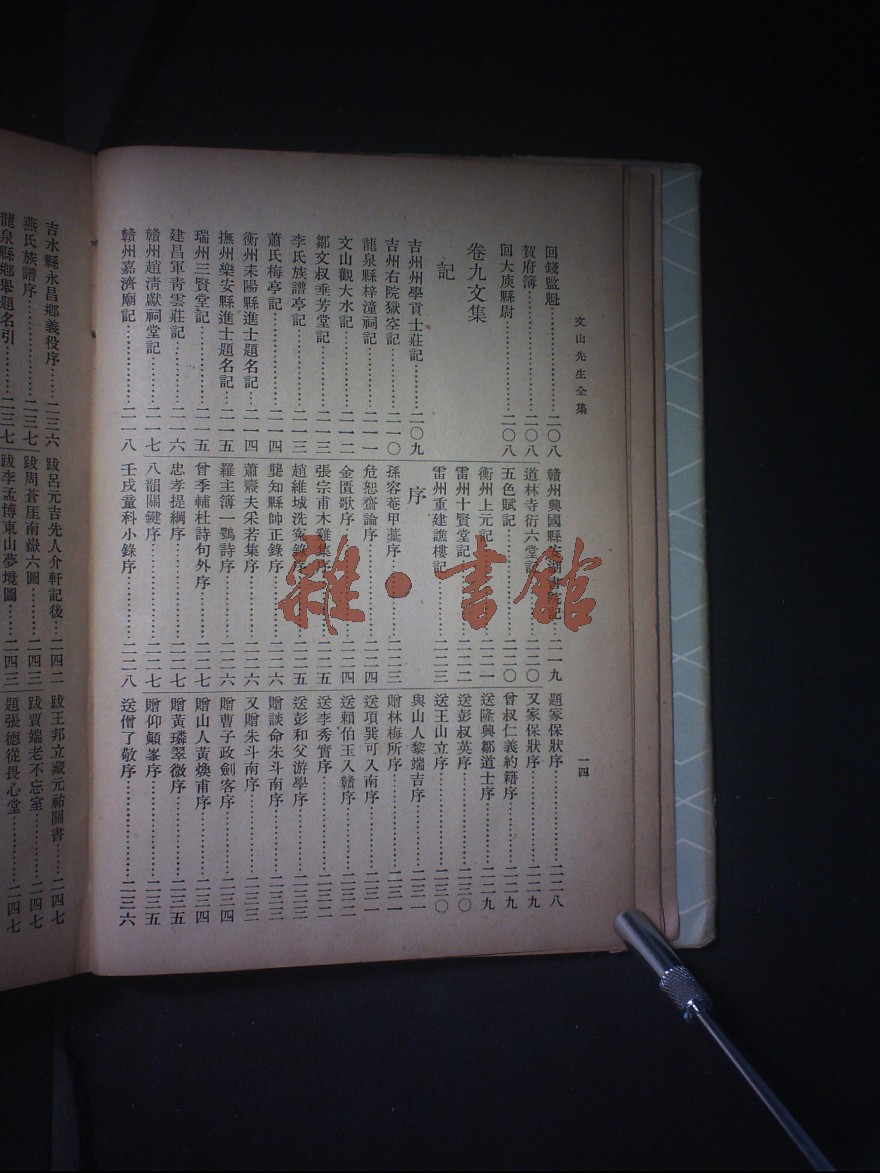 文山先生全集
一四
回錢監魁………二〇八
賀府簿………二〇八
回大庾縣尉………二〇八
卷九文集
記
吉州州學貢士莊記………二〇九
吉州右院獄空記………二一〇
龍泉縣梓潼祠記………二一一
文山觀大水記………二一二
鄒文叔垂芳堂記………二一三
李氏族譜亭記………二一三
蕭氏梅亭記………二一四
衡州耒陽縣進士題名記………二一四
撫州樂安縣進士題名記………二一五
瑞州三賢堂記………二一五
建昌軍青雲莊記………二一六
贛州趙清獻祠堂記………二一七
贛州嘉濟廟記………二一八
贛州興國縣安湖書院記………二一九
道林寺衍六堂記………二二〇
五色賦記………二二〇
衡州上元記………二二一
雷州十賢堂記………二二二
雷州重建譙樓記………二二三
序
孫容菴甲藁序………二二三
危恕齋論序………二二四
金匱歌序………二二四
張宗甫木雞集序………二二五
趙維城洗冤錄序………二二五
龔知縣帥正錄序………二二六
蕭燾夫采若集序………二二六
羅主簿一鶚詩序………二二六
曾季輔杜詩句外序………二二七
忠孝提綱序………二二七
八韻關鍵序………二二七
壬戌童科小錄序………二二八
題家保狀序………二二八
又家保狀序………二二九
曾叔仁義約籍序………二二九
送隆興鄒道士序………二二九
送彭叔英序………二三〇
送王山立序………二三〇
與山人黎端吉序………二三一
贈林梅所序………二三一
送項巽可入南序………二三一
送賴伯玉入贛序………二三二
送李秀實序………二三二
送彭和父游學序………二三三
贈談命朱斗南序………二三三
又贈朱斗南序………二三三
贈曹子政劍客序………二三四
贈山人黃煥甫序………二三四
贈黃璘翠微序………二三五
贈仰顛峯序………二三五
送僧了敬序………二三六
吉水縣永昌鄉義役序………二三六
燕氏族譜序………二三七
龍泉縣鄉舉題名引………二三七
跋呂元吉先人介軒記後………二四二
跋周蒼厓南嶽六圖………二四三
跋李孟博東山夢境圖………二四三
跋王邦立藏元祐關書………二四七
跋賈端老不忘室………二四七
題張德從畏心堂………二四七
雜·書館